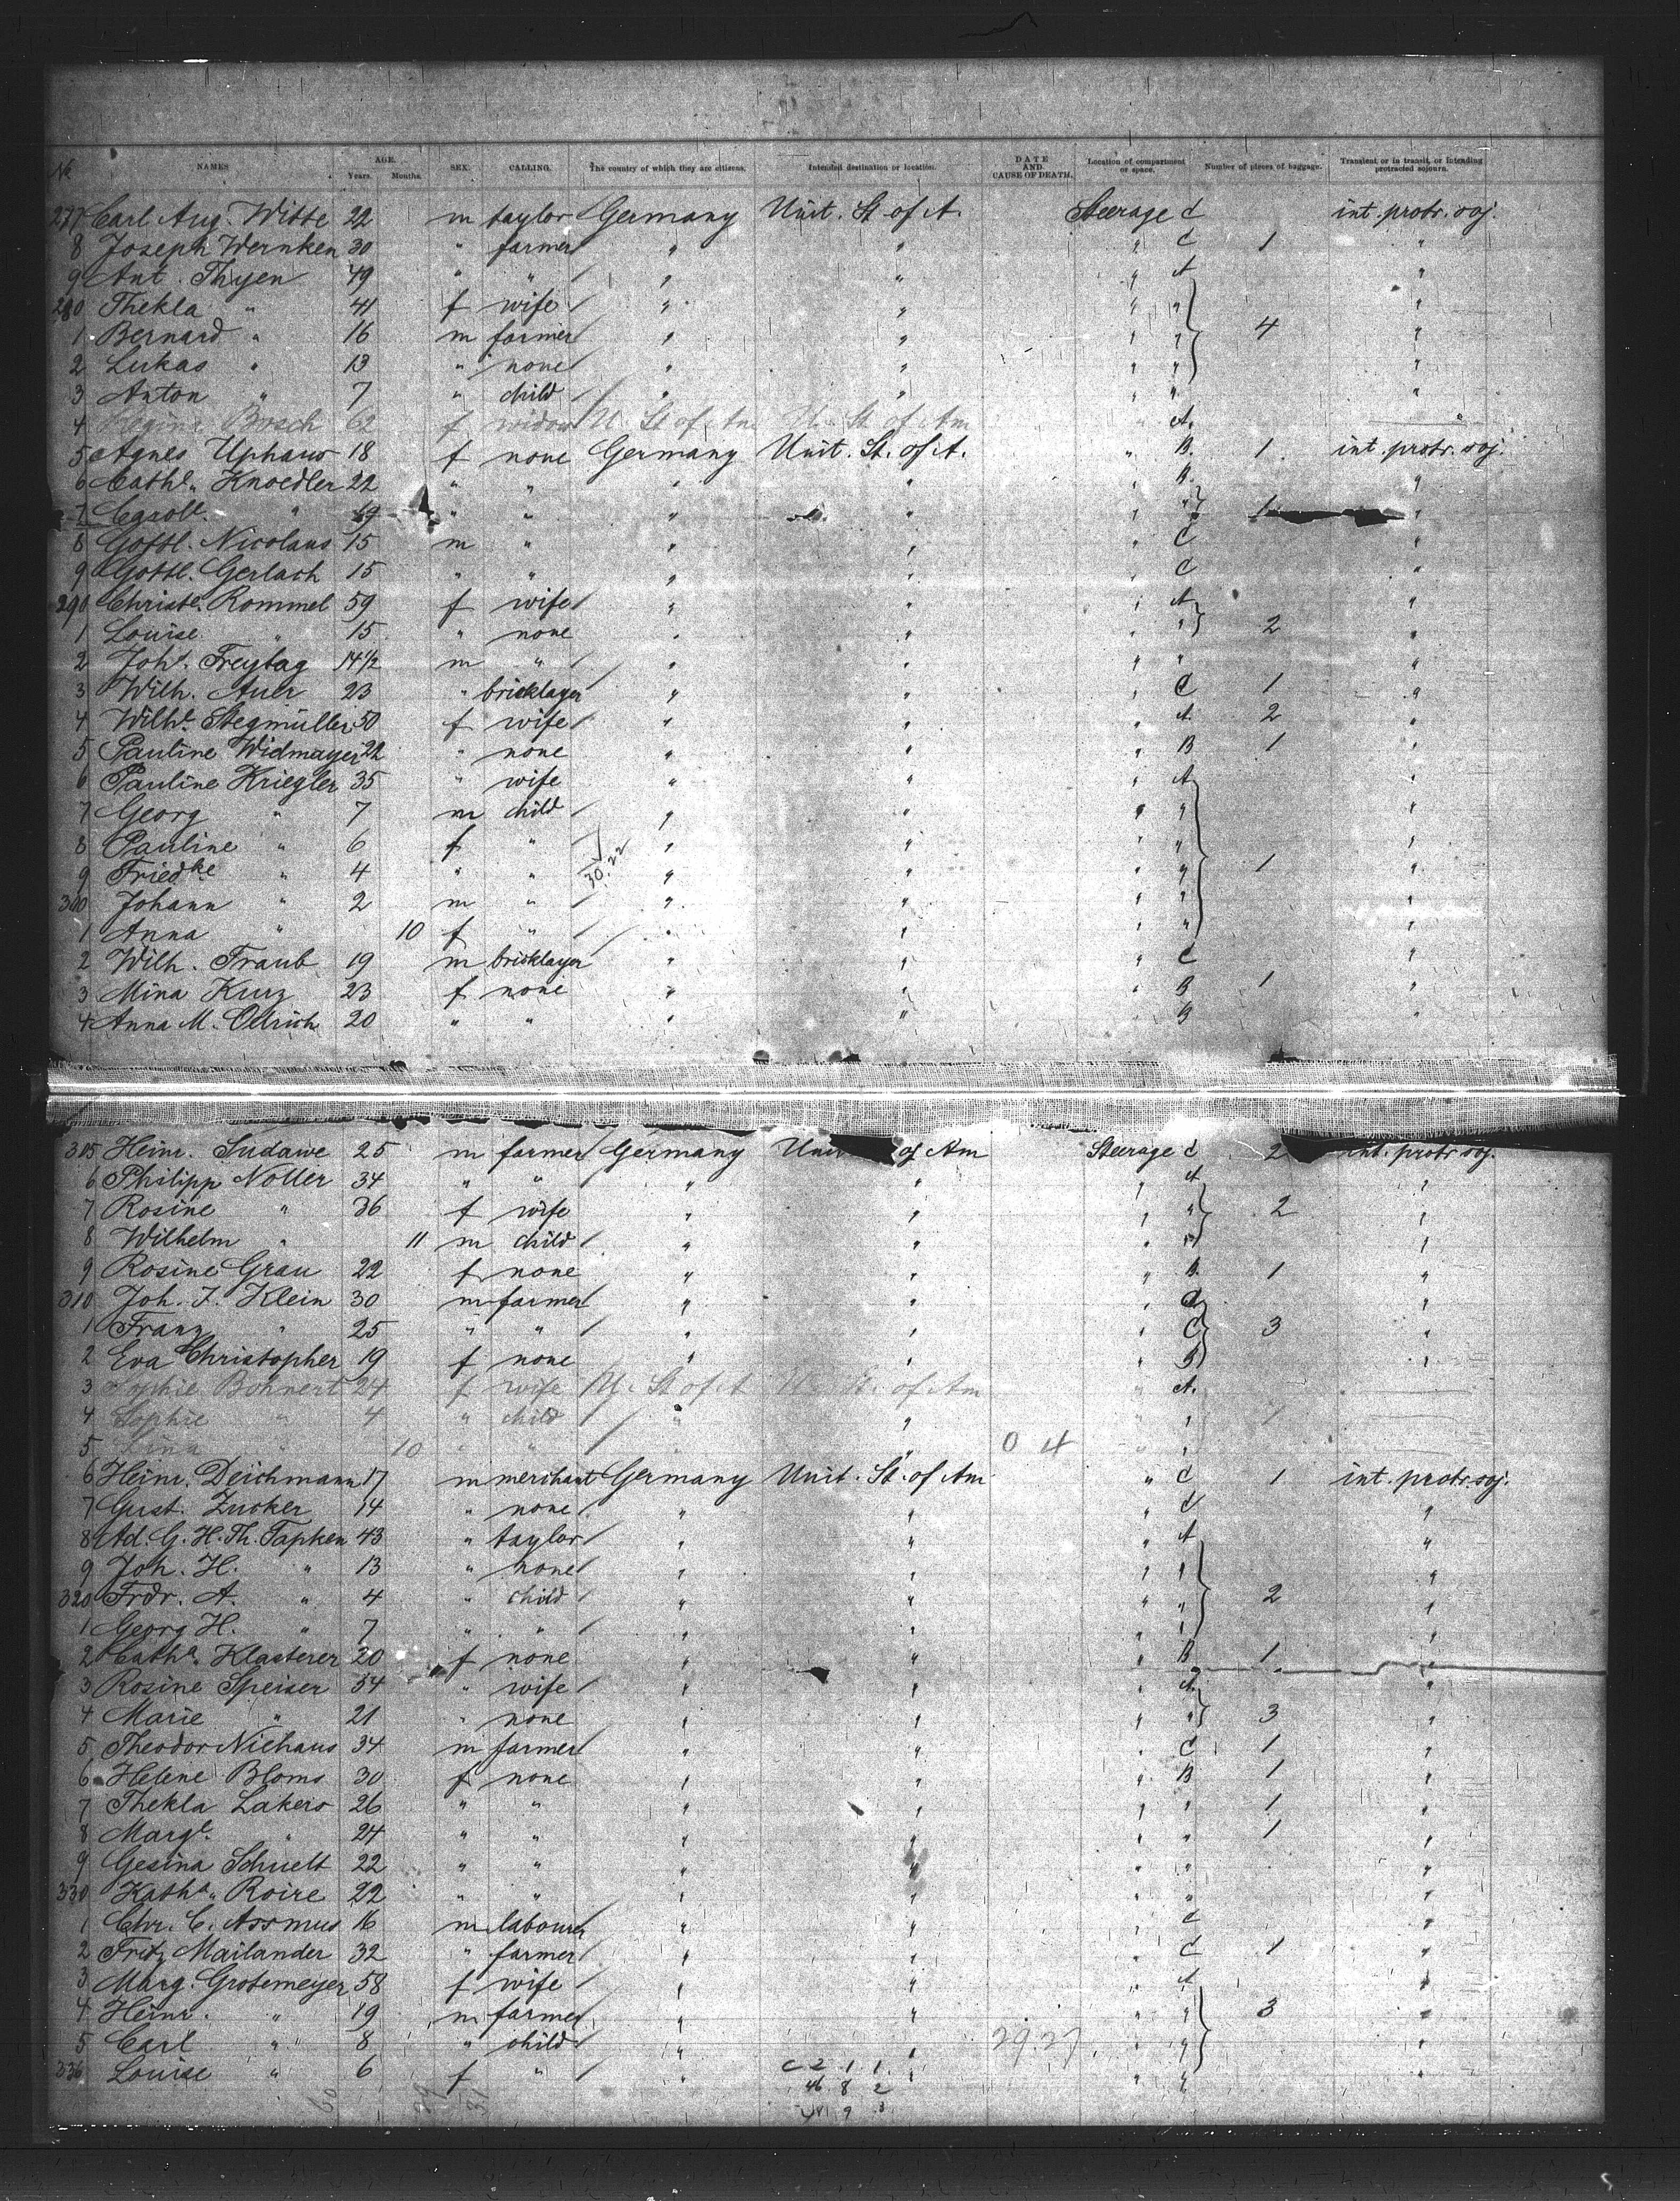 No NAMES AGE. Years. Months. SEX. CALLING. The country of which they are citizens. Intended destination or location. DATE AND CAUSE OF DEATH. Location of compartment or space. Number of pieces of baggage. Transient, or in transit, or intending protracted sojourn.
277 Carl Aug. Witte 22 m taylor Germany Unit. St. of A. Steerage C int. protr. soj.
8 Joseph Wernken 30 " farmer " " " C 1 "
9 Ant. Thyen 49 " " " " " A "
280 Thekla " 41 f wife " " " " "
1 Bernard " 16 m farmer " " " " 4 "
2 Lukas " 13 " none " " " " "
3 Anton " 7 " child " " " " "
4 Regina Bosch 62 f widow U. St of Am U. St of Am " A. "
5 Agnes Uphaus 18 f none Germany Unit. St. of A. " B. 1 int. protr. soj.
6 Cathe. Knoedler 22 " " " " B. "
7 Carole. " 19 " " " " " " 1 "
8 Gottl. Nicolaus 15 m " " " " C "
9 Gottl. Gerlach 15 " " " " " C "
290 Christe. Rommel 59 f wife " " " A "
1 Louise " 15 " none " " " " 2 "
2 Johs. Freytag 14 1/2 m " " " " " "
3 Wilh. Auer 23 " bricklayer " " " C 1 "
4 Wilhe. Stegmüller 50 f wife " " " A 2 "
5 Pauline Widmayer 22 " none " " " B 1 "
6 Pauline Kriegler 35 " wife " " " A "
7 Georg " 7 m child " " " " "
8 Pauline " 6 f " " " " " "
9 Friedke " 4 " " 30.22 " " " " 1 "
300 Johann " 2 m " " " " " "
1 Anna " 10 f " " " " " "
2 Wilh. Traub 19 m bricklayer " " " C "
3 Mina Kurz 23 f none " " " B 1 "
4 Anna M. Odrich 20 " " " " " B "
305 Heinr. Sudawe 25 m farmer Germany Uni of Am Steerage C 2 int. protr. soj.
6 Philipp Noller 34 " " " " " A "
7 Rosine " 36 f wife " " " " 2 "
8 Wilhelm " 11 m child " " " " "
9 Rosine Grau 22 f none " " " B. 1 "
310 Joh. J. Klein 30 m farmer " " " C "
1 Franz " 25 " " " " " C 3 "
2 Eva Christopher 19 f none " " " B "
3 Sophie Bohnert 24 f wife U. St of A U. St. of Am " A.
4 Sophie " 4 " child " " " " 1
5 Lina " 10 " " " " 0 4 " "
6 Heinr. Deichmann 17 m merchant Germany Unit. St. of Am " C 1 int. protr. soj.
7 Gust. Zucker 14 " none " " C "
8 Ad. G. H. Th. Tapken 43 " taylor " " A "
9 Joh. H. " 13 " none " " " " "
320 Frdr. A. " 4 " child " " " " 2 "
1 Georg H. " 7 " " " " " " "
2 Cathe. Klasterer 20 f none " " " B 1 "
3 Rosine Speiser 54 " wife " " " A. "
4 Marie " 21 " none " " " " 3 "
5 Theodor Niehaus 34 m farmer " " " C 1 "
6 Helene Bloms 30 f none " " " B 1 "
7 Thekla Lakers 26 " " " " " " 1 "
8 Marge. " 24 " " " " " " 1 "
9 Gesina Schuelt 22 " " " " " " "
330 Kathe. Roire 22 " " " " " " "
1 Chr. C. Assmus 16 m labourer " " " C "
2 Fritz Mailander 32 " farmer " " " C 1 "
3 Marg. Grotemeyer 58 f wife " " " A "
4 Heinr. " 19 m farmer " " " " 3 "
5 Carl " 8 " child " " 29.27 " " "
336 Louise " 6 f " " " " "
C 2 1 1
46 8 2
9 3